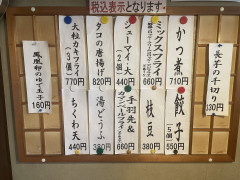 税込表示となります。
長芋の千切り
330円
かつ煮
770円
ミックスフライ
660円
シューマイ・大
(2個)
440円
タコの唐揚げ
820円
大粒カキフライ
(3個)
770円
鳳凰卵のゆで玉子
160円
餃子
(5個)
550円
枝豆
380円
手羽先&
カマンベールフライ
660円
湯どうふ
380円
ちくわ天
440円